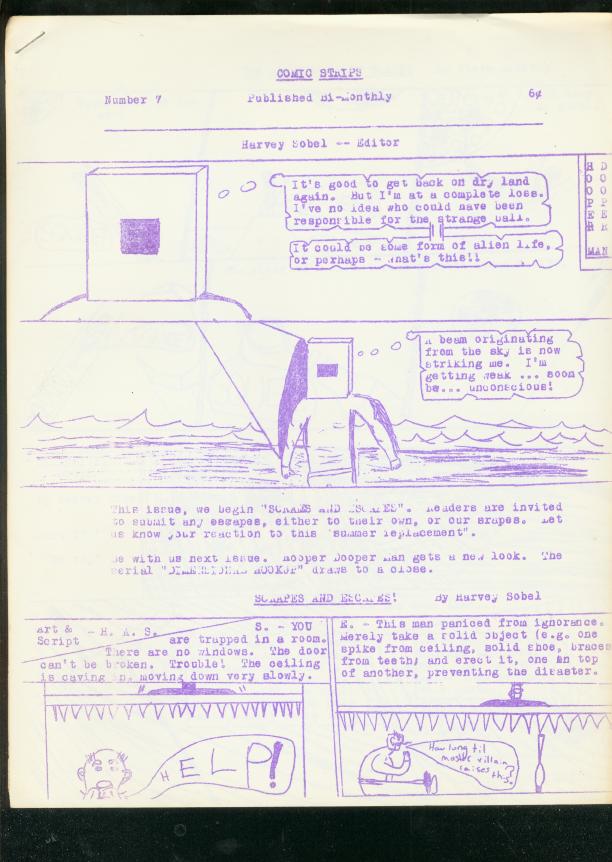 COMIC STRIPS
Number 7 Published Bi-Monthly 6¢
Harvey Sobel -- Editor
It's good to get back on dry land
again. But I'm at a complete loss.
I've no idea who could have been
responsible for the strange ball.
It could be some form of alien life,
or perhaps - what's this!!
H D
O O
O O
P P
E E
R R
MAN
A beam originating
from the sky is now
striking me. I'm
getting weak ... soon
be... unconscious!
This issue, we begin "SCRAPES AND ESCAPES". Readers are invited
to submit any escapes, either to their own, or our srapes. Let
us know your reaction to this "summer replacement".
Be with us next issue. Hooper Dooper Man gets a new look. The
serial "DIMENSIONAL HOOKUP" draws to a close.
SCRAPES AND ESCAPES! By Harvey Sobel
Art & - H. A. S.
Script
S. - YOU
are trapped in a room.
There are no windows. The door
can't be broken. Trouble! The ceiling
is caving in, moving down very slowly.
HELP!
E. - This man paniced from ignorance.
Merely take a solid object (e.g. one
spike from ceiling, solid shoe, braces
from teeth) and erect it, one on top
of another, preventing the disaster.
How long til
master villain
raises
this?